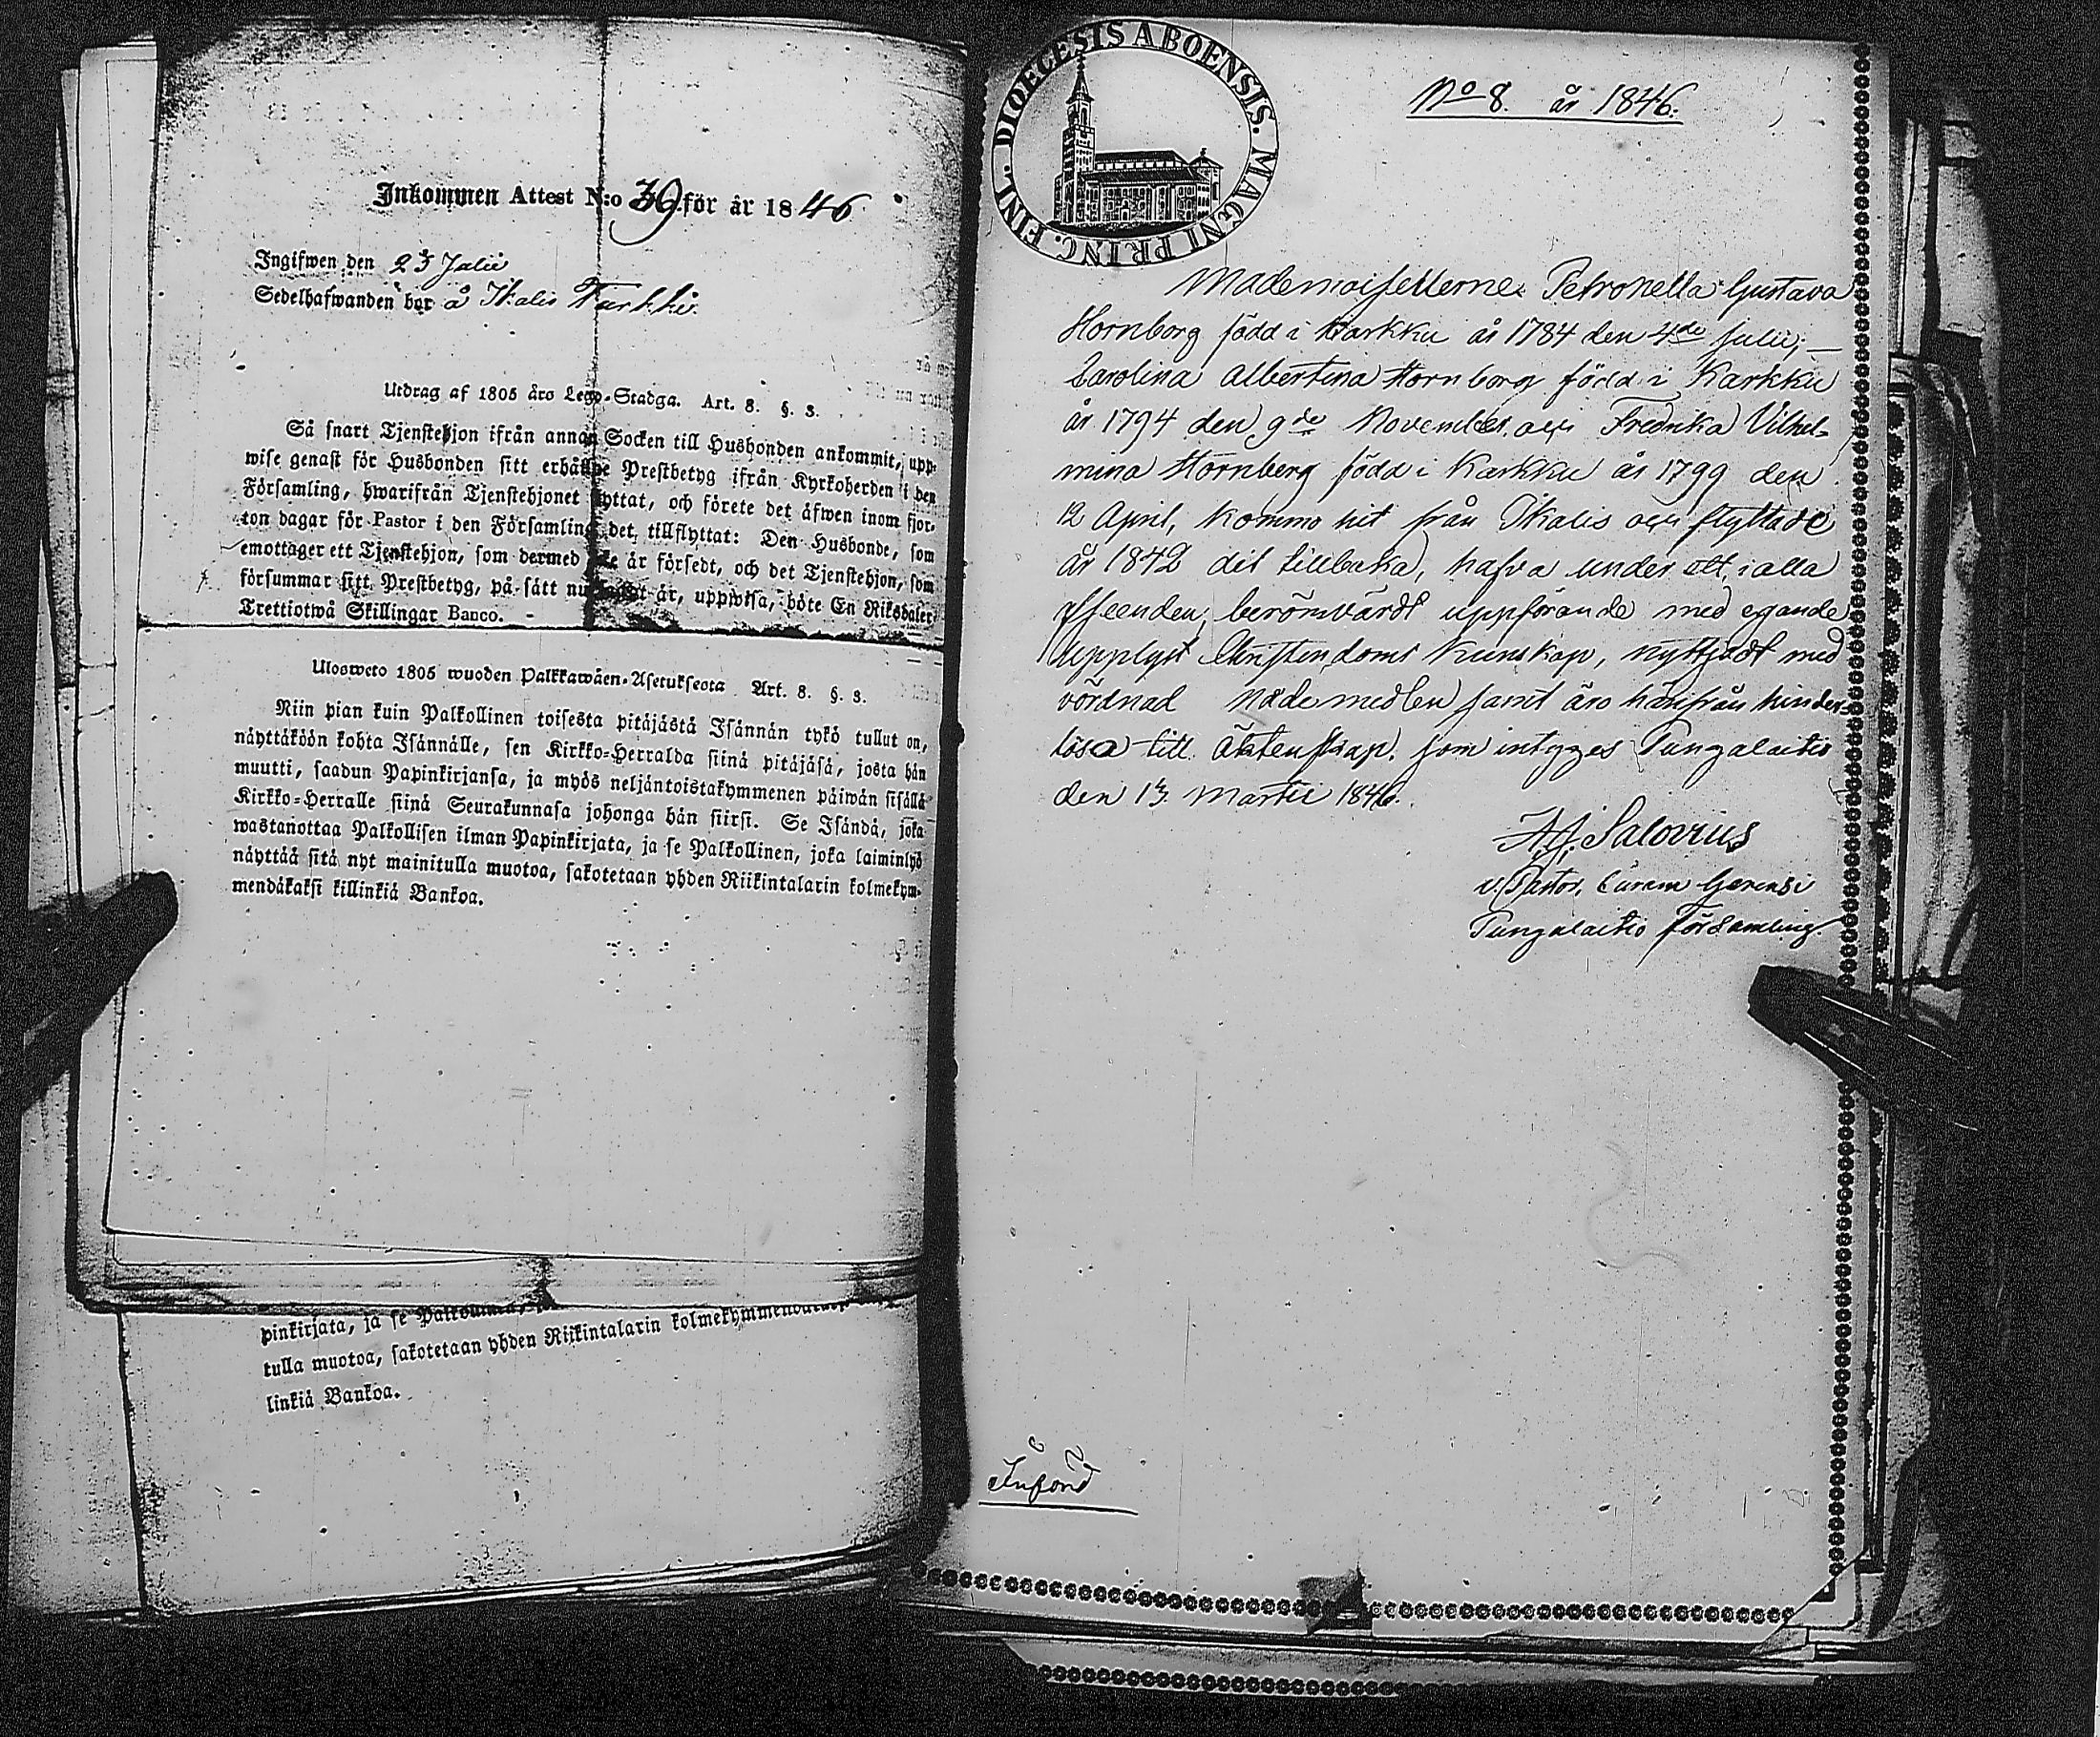 Inkommen Attest N:o 39 för år 1846
Ingifwen den 23 Julii
Sedelhafwanden bor å Ikalis Turkki.
Utdrag af 1805 års Lego-Stadga. Art. 8. §. 3.
Så snart Tjenstehjon ifrån annan Socken till Husbonden ankommit, upp-
wise genast för Husbonden sitt erhållne Prestbetyg ifrån Kyrkoherden i den
Församling, hwarifrån Tjenstehjonet flyttat, och förete det åfwen inom fjor-
ton dagar för Pastor i den Församling det tillflyttat: Den Husbonde, som
emottager ett Tjenstehjon, som dermed icke är försedt, och det Tjenstehjon, som
försummar sitt Prestbetyg, på sätt nu sagdt är, uppwisa, böte En Riksdaler
Trettiotwå Skillingar Banco.
Ulosweto 1805 wuoden Palkkawåen-Asetuksesta Art. 8. §. 3.
Niin pian kuin Palkollinen toisesta pitåjåstå Isånnån tykö tullut on,
nåyttåköön kohta Isånnålle, sen Kirkko-Herralda siinå pitåjåså, josta hån
muutti, saadun Papinkirjansa, ja myös neljåntoistakymmenen påiwån sisållå
Kirkko-Herralle siinå Seurakunnasa johonga hån siirsi. Se Isåndå, joka
wastanottaa Palkollisen ilman Papinkirjata, ja se Palkollinen, joka laiminlyö
nåyttåå sitå nyt mainitulla muotoa, sakotetaan yhden Riikintalarin kolmekym-
mendåkaksi killinkiå Bankoa.
pinkirjata, ja se Palkollinen,
tulla muotoa, sakotetaan yhden Riikintalarin
linkiå Bankoa.
FINL. DIOECESIS ABOENSIS. MAGNI PRINC.
No 8. år 1846.
Mademoisellerne Petronella Gustava
Hornborg född i Karkku år 1784 den 4de Julii; —
Carolina Albertina Hornborg född i Karkku
år 1794 den 9de November, och Fredrika Vilhel-
mina Hornborg född i Karkku år 1799 den
12 April, kommo hit från Ikalis och flyttade
år 1842 dit tillbaka, hafva under ett, i alla
afseenden, berömvärdt uppförande med egande
upplyst Christendoms kunskap, nyttjadt med
vördnad Nådemedlen samt äro härifrån hinder-
lösa till Äktenskap. som intygges Pungalaitio
den 13 Martii 1846.
Salovius
v. Pastor, Curam Gerens i
Pungalaitio Församling.
Införd